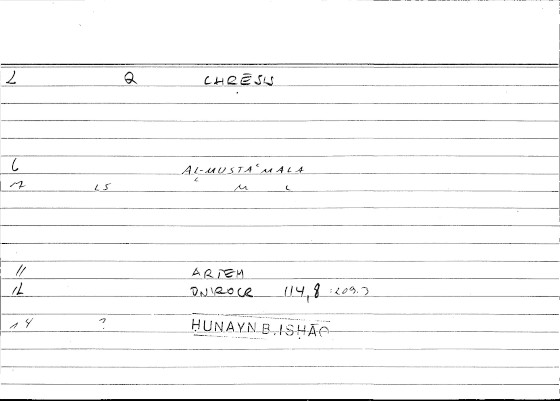 2 Q CHRĒSIS
6 AL-MUSTAʿMALA
7 15 M L
11 ARTEM
12 ONIROCR 114,8
14 ? HUNAYN B. ISḤĀQ